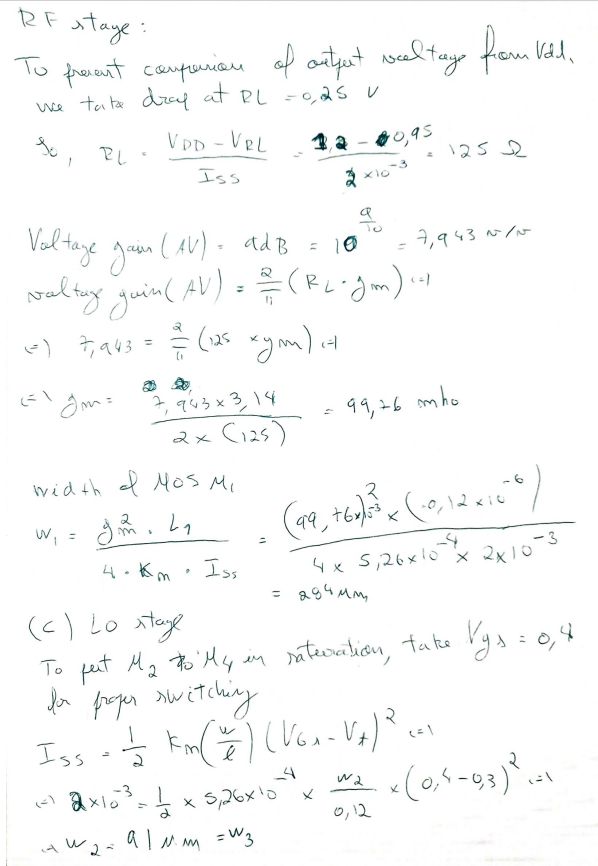 RF stage:
To prevent compression of output voltage from Vdd,
we take drop at RL = 0,25 V
So, RL = (VDD - VRL) / ISS = (1,2 - 0,95) / (2 x10^-3) = 125 Ω
Voltage gain (AV) = 9dB = 10^(9/10) = 7,943 v/v
voltage gain (AV) = 2/π (RL · gm) (=)
(=) 7,943 = 2/π (125 x gm) (=)
(=) gm = (7,943 x 3,14) / (2 x (125)) = 99,76 mho
width of MOS M1
W1 = (gm^2 · L1) / (4 · Km · ISS) = ((99,76x10^-3)^2 x (0,12 x10^-6)) / (4 x 5,26x10^-4 x 2x10^-3)
= 284 μm
(C) LO stage
To put M2 to M4 in saturation, take Vgs = 0,4
for proper switching
ISS = 1/2 Km (w/l) (VGs - Vt)^2 (=)
(=) 2x10^-3 = 1/2 x 5,26x10^-4 x W2/0,12 x (0,4 - 0,3)^2 (=)
=) W2 = 91 μm = W3